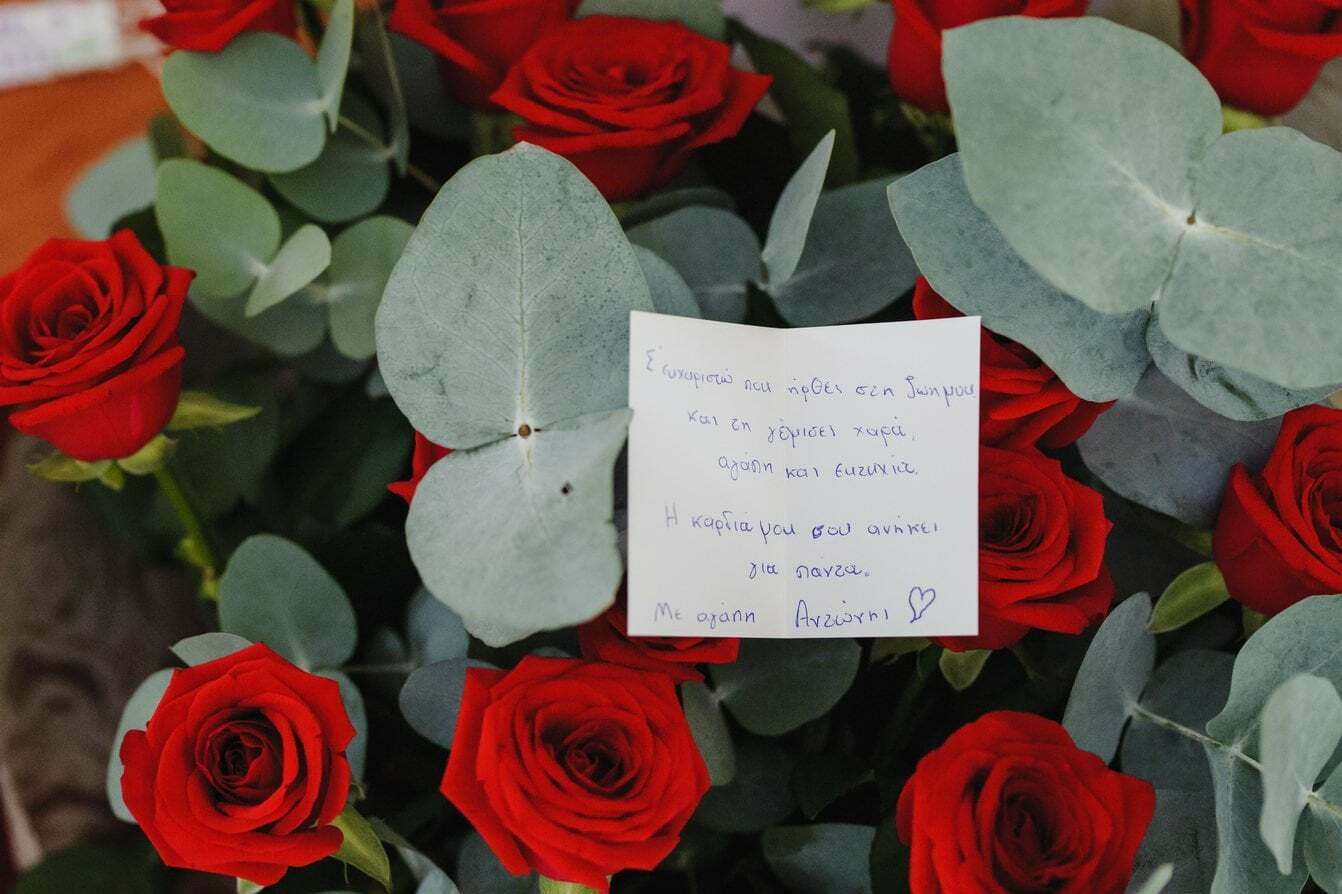 Σ'ευχαριστώ που ήρθες στη ζωή μου
και τη γέμισες χαρά,
αγάπη και ευτυχία.
Η καρδιά μου σου ανήκει
για πάντα.
Με αγάπη Αντώνης